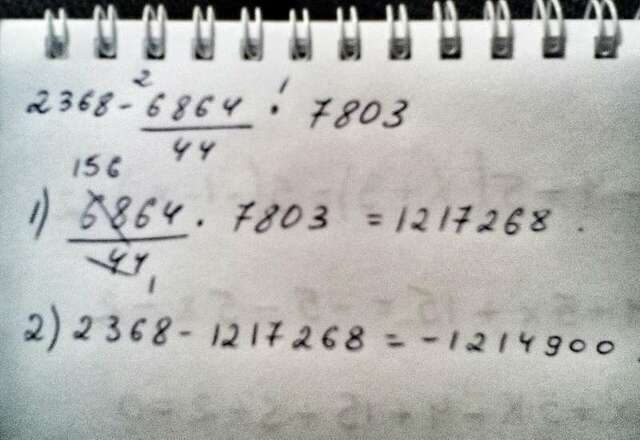 2368 - 6864/44 · 7803
2 1
156
1) 6864/44 · 7803 = 1217268.
1
2) 2368 - 1217268 = -1214900